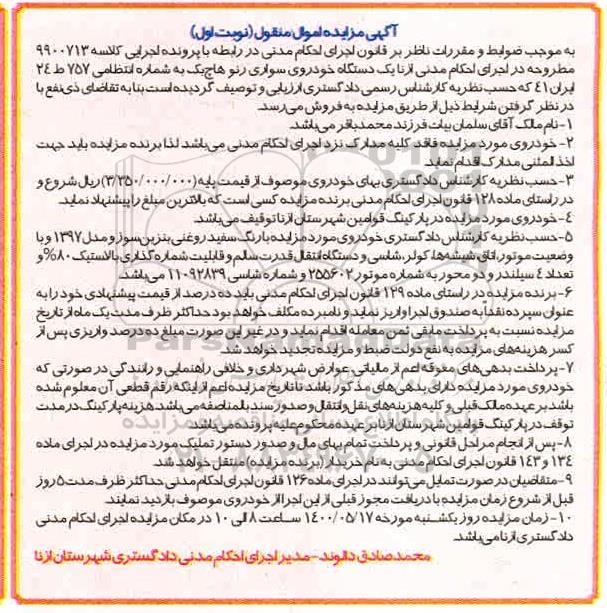 آگهی مزایده اموال منقول (نوبت اول)
به موجب ضوابط و مقررات ناظر بر قانون اجرای احکام مدنی در رابطه با پرونده اجرایی کلاسه ۹۹۰۰۷۱۳
مطروحه در اجرای احکام مدنی ازنا یک دستگاه خودروی سواری رنو هاچ‌بک به شماره انتظامی ۷۵۷ ط ۲۴
ایران ۴۱ که حسب نظریه کارشناس رسمی دادگستری ارزیابی و توصیف گردیده است بنا به تقاضای ذی‌نفع با
در نظر گرفتن شرایط ذیل از طریق مزایده به فروش می‌رسد.
۱- نام مالک آقای سلمان بیات فرزند محمدباقر می‌باشد.
۲- خودروی مورد مزایده فاقد کلیه مدارک نزد اجرای احکام مدنی می‌باشد لذا برنده مزایده باید جهت
اخذ المثنی مدارک اقدام نماید.
۳- حسب نظریه کارشناس دادگستری بهای خودروی موصوف از قیمت پایه (۳/۳۵۰/۰۰۰/۰۰۰) ریال شروع و
در راستای ماده ۱۲۸ قانون اجرای احکام مدنی برنده مزایده کسی است که بالاترین مبلغ را پیشنهاد نماید.
۴- خودروی مورد مزایده در پارکینگ قوامین شهرستان ازنا توقیف می‌باشد.
۵- حسب نظریه کارشناس دادگستری خودروی مورد مزایده با رنگ سفید روغنی بنزین سوز و مدل ۱۳۹۷ و با
وضعیت موتور، اتاق، شیشه‌ها، کولر، شاسی و دستگاه انتقال قدرت سالم و قابلیت شماره گذاری با لاستیک ۸۰% و
تعداد ۴ سیلندر و دو محور به شماره موتور ۲۵۵۶۰۲ و شماره شاسی ۱۱۰۹۲۸۳۹ می‌باشد.
۶- برنده مزایده در راستای ماده ۱۲۹ قانون اجرای احکام مدنی باید ده درصد از قیمت پیشنهادی خود را به
عنوان سپرده نقداً به صندوق اجرا واریز نماید و نامبرده مکلف خواهد بود حداکثر ظرف مدت یک ماه از تاریخ
مزایده نسبت به پرداخت مابقی ثمن معامله اقدام نماید و در غیر این صورت مبلغ ده درصد واریزی پس از
کسر هزینه‌های مزایده به نفع دولت ضبط و مزایده تجدید خواهد شد.
۷- پرداخت بدهی‌های معوقه اعم از مالیاتی، عوارض شهرداری و خلافی راهنمایی و رانندگی در صورتی که
خودروی مورد مزایده دارای بدهی‌های مذکور باشد تا تاریخ مزایده اعم از اینکه رقم قطعی آن معلوم شده
باشد بر عهده مالک قبلی و کلیه هزینه‌های نقل و انتقال و صدور سند بالمناصفه می‌باشد. هزینه پارکینگ در مدت
توقف در پارکینگ قوامین شهرستان ازنا بر عهده محکوم علیه پرونده می‌باشد.
۸- پس از انجام مراحل قانونی و پرداخت تمام بهای مال و صدور دستور تملیک مورد مزایده در اجرای ماده
۱۳۴ و ۱۴۳ قانون اجرای احکام مدنی به نام خریدار (برنده مزایده) منتقل خواهد شد.
۹- متقاضیان در صورت تمایل می‌توانند در اجرای ماده ۱۲۶ قانون اجرای احکام مدنی حداکثر ظرف مدت ۵ روز
قبل از شروع زمان مزایده با دریافت مجوز قبلی از این اجرا از خودروی موصوف بازدید نمایند.
۱۰- زمان مزایده روز یکشنبه مورخه ۱۴۰۰/۰۵/۱۷ ساعت ۸ الی ۱۰ در مکان مزایده اجرای احکام مدنی
دادگستری ازنا می‌باشد.
محمدصادق دالوند - مدیر اجرای احکام مدنی دادگستری شهرستان ازنا